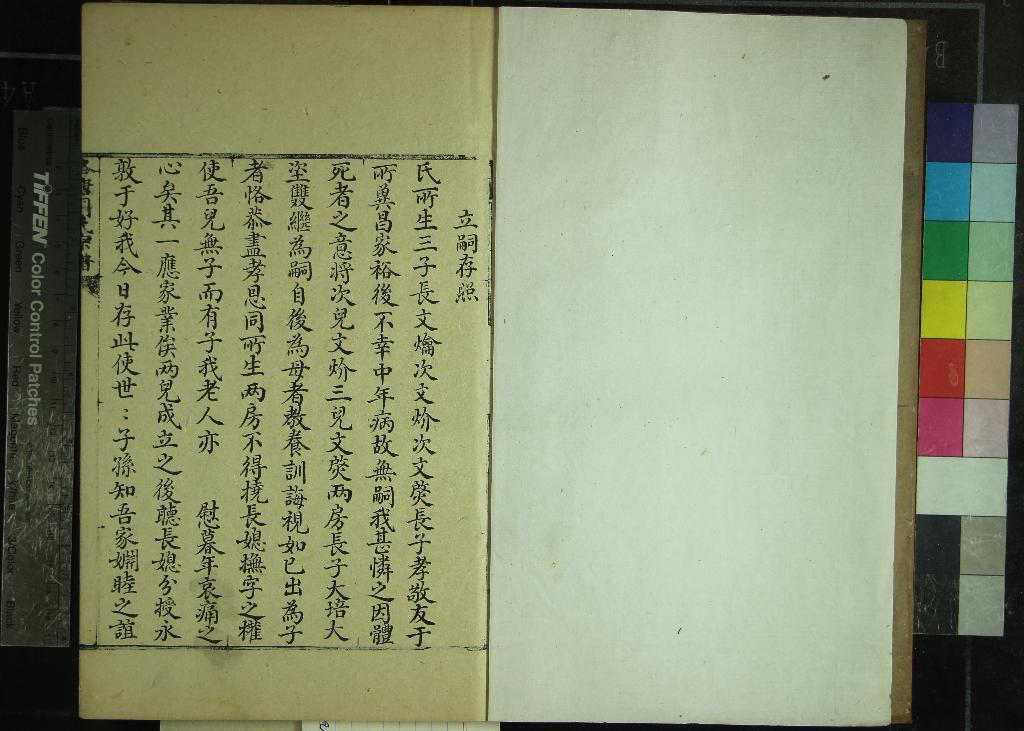 立嗣存照
氏所生三子長文爚次文炌次文熒長子孝敬友于
所冀昌家裕後不幸中年病故無嗣我甚憐之因體
死者之意將次兒文炌三兒文熒两房長子大培大
坖雙繼為嗣自後為母者教養訓誨視如已出為子
者恪恭盡孝恩同所生两房不得撓長媳撫字之權
使吾兒無子而有子我老人亦 慰暮年哀痛之
心矣其一應家業俟两兒成立之後聽長媳分授永
敦于好我今日存此使世〻子孫知吾家婣睦之誼
宗譜
TIFFEN Color Control Patches
Blue
Cyan
Green
Yellow
Red
Magenta
White
3/Color
Black
A4
B